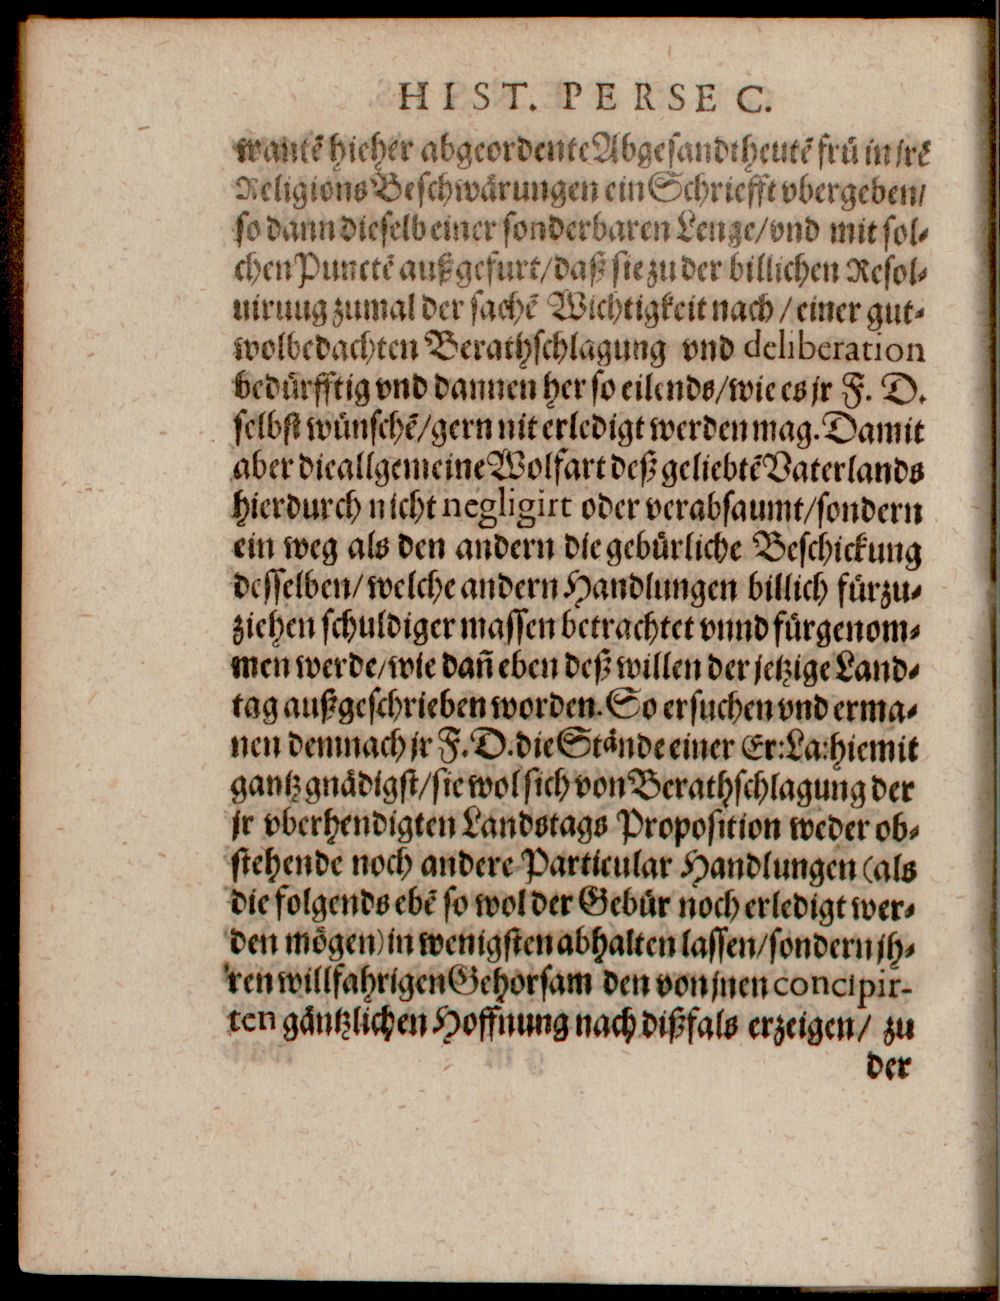 HIST. PERSEC.
wantē hieher abgeordente Abgesandt heutē frü in jrē
Religions Beschwärungen ein Schriefft vbergeben/
so dann dieselb einer sonderbaren Lenge/vnd mit sol-
chen Punctē außgefurt/daß sie zu der billichen Resol-
uirung zumal der sachē Wichtigkeit nach / einer gut-
wolbedachten Berathschlagung vnd deliberation
bedürfftig vnd dannen her so eilends/wie es jr F. D.
selbst wünschē/gern nit erledigt werden mag. Damit
aber die allgemeine Wolfart deß geliebtē Vaterlands
hierdurch nicht negligirt oder verabsaumt/sondern
ein weg als den andern die gebürliche Beschickung
desselben/ welche andern Handlungen billich fürzu-
ziehen schuldiger massen betrachtet vnnd fürgenom-
men werde/wie dañ eben deß willen der jetzige Land-
tag außgeschrieben worden. So ersuchen vnd erma-
nen demnach jr F. D. die Stände einer Er: La: hiemit
gantz gnädigst/sie wol sich von Berathschlagung der
jr vberhendigten Landstags Proposition weder ob-
stehende noch andere Particular Handlungen (als
die folgends ebē so wol der Gebür noch erledigt wer-
den mögen) in wenigsten abhalten lassen/sondern jh-
ren willfahrigen Gehorsam den von jnen concipir-
ten gäntzlichen Hoffnung nach dißfals erzeigen/ zu
der